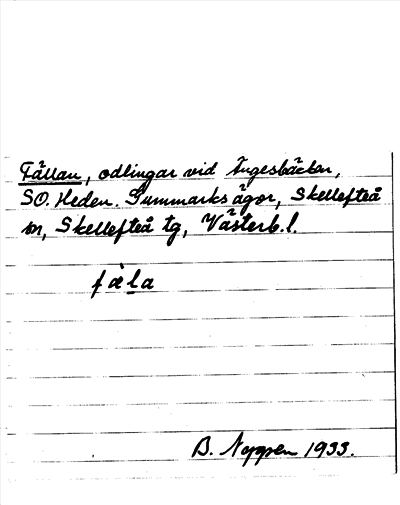 Fällan, odlingar vid Ängesbäcken,
SO. Heden. Gummarks ägor, Skellefteå
sn, Skellefteå tg, Västerb. l.
fàla
B. Nygren 1933.